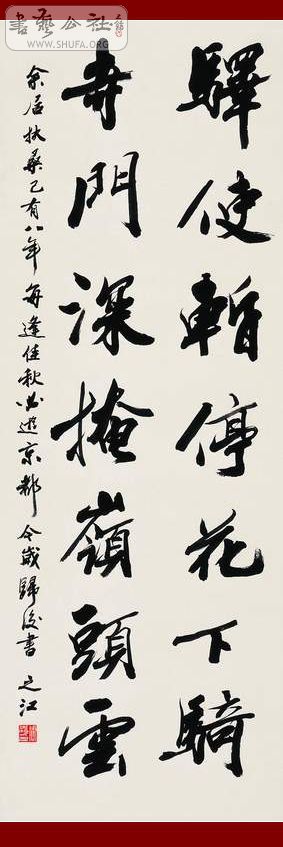 書藝公社
WWW.SHUFA.ORG
驛使暫停花下騎
寺門深掩嶺頭雲
余居扶桑已有八年每逢佳秋必遊京都今歲歸後書之江